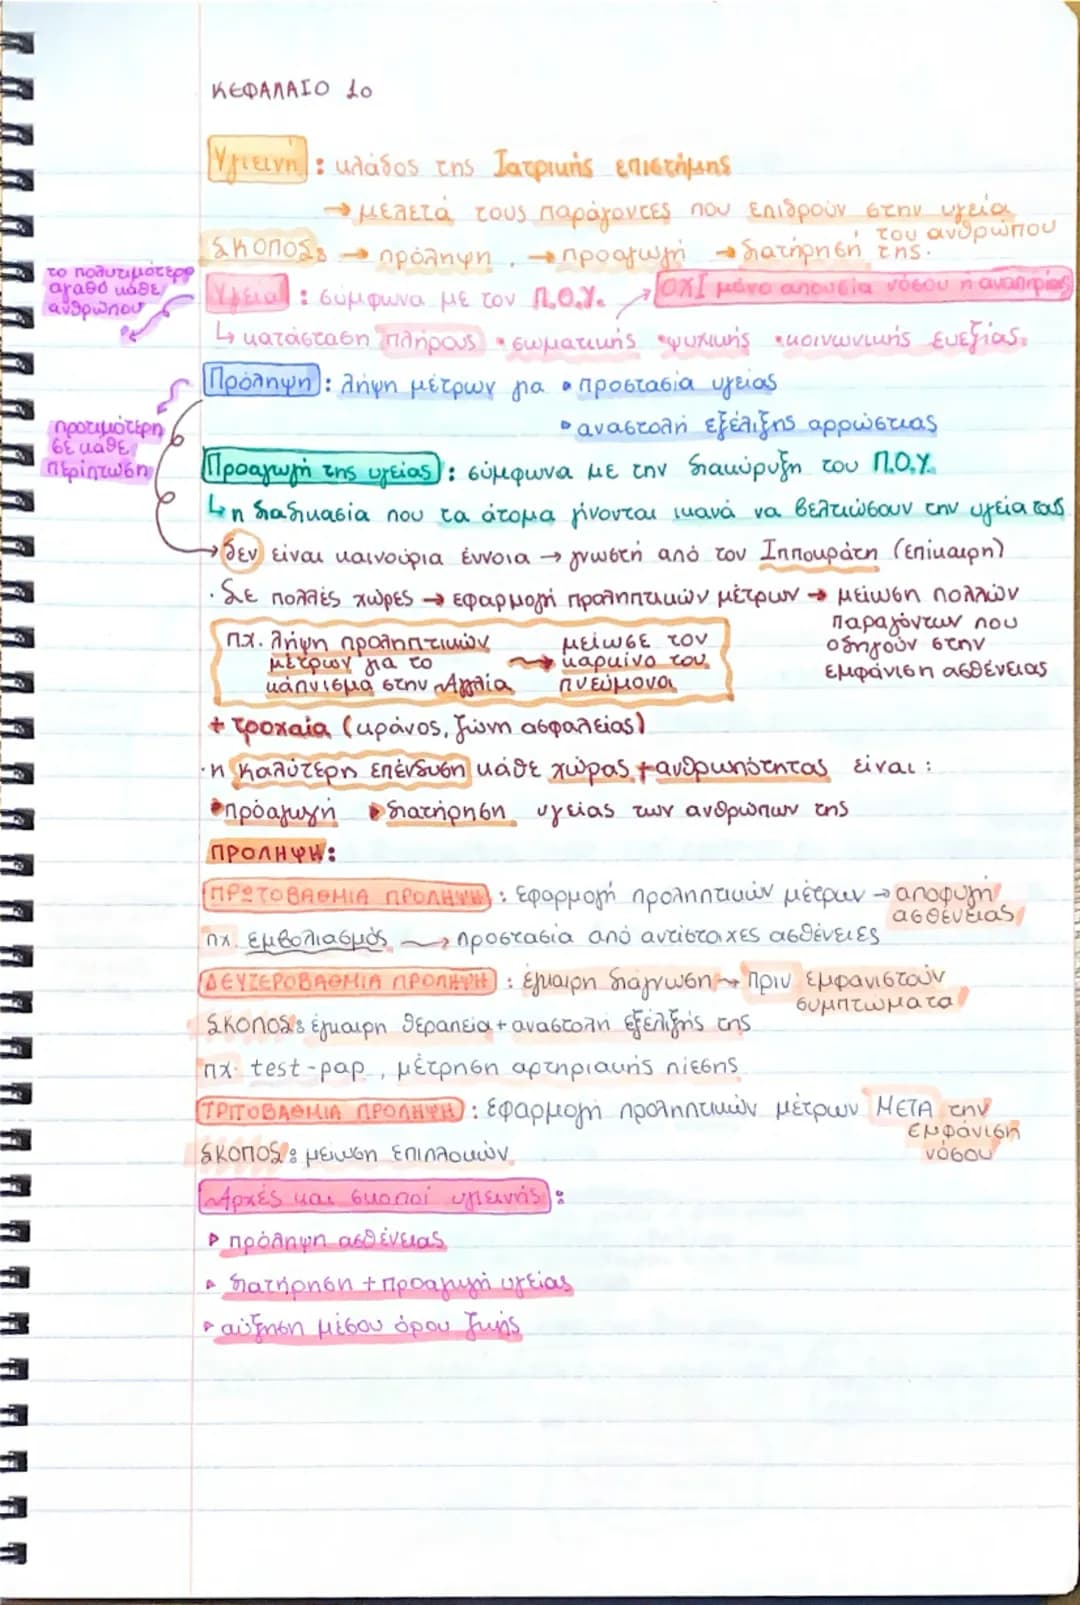 ΚΕΦΑΛΑΙΟ 1ο
Υγιεινή : κλάδος της Ιατρικής επιστήμης
→ μελετά τους παράγοντες που επιδρούν στην υγεία
του ανθρώπου
ΣΚΟΠΟΣ: → πρόληψη, → προαγωγή → διατήρησή της.
το πολυτιμότερο
αγαθό κάθε
ανθρώπου
Υγεία : σύμφωνα με τον Π.Ο.Υ. ΟΧΙ μόνο απουσία νόσου ή αναπηρίας
↳ κατάσταση πλήρους • σωματικής • ψυχικής • κοινωνικής ευεξίας.
Πρόληψη : λήψη μέτρων για • προστασία υγείας
• αναστολή εξέλιξης αρρώστιας
προτιμότερη
σε κάθε
περίπτωση
Προαγωγή της υγείας : σύμφωνα με την διακύρυξη του Π.Ο.Υ.
↳ η διαδικασία που τα άτομα γίνονται ικανά να βελτιώσουν την υγεία τους
→ δεν είναι καινούρια έννοια → γνωστή από τον Ιπποκράτη (επίκαιρη)
· Σε πολλές χώρες → εφαρμογή προληπτικών μέτρων → μείωση πολλών
παραγόντων που
οδηγούν στην
εμφάνιση ασθένειας
πχ. λήψη προληπτικών
μέτρων για το
κάπνισμα στην Αγγλία
→ μείωσε τον
καρκίνο του
πνεύμονα
+ τροχαία (κράνος, ζώνη ασφαλείας)
· η καλύτερη επένδυση κάθε χώρας + ανθρωπότητας είναι :
▸ πρόαγωγή ▸ διατήρηση υγείας των ανθρώπων της
ΠΡΟΛΗΨΗ:
ΠΡΩΤΟΒΑΘΜΙΑ ΠΡΟΛΗΨΗ : εφαρμογή προληπτικών μέτρων → αποφυγή
ασθένειας
πχ. εμβολιασμός → προστασία από αντίστοιχες ασθένειες
ΔΕΥΤΕΡΟΒΑΘΜΙΑ ΠΡΟΛΗΨΗ : έγκαιρη διάγνωση → πριν εμφανιστούν
συμπτώματα
ΣΚΟΠΟΣ: έγκαιρη θεραπεία + αναστολή εξέλιξής της
πχ. test-pap, μέτρηση αρτηριακής πίεσης
ΤΡΙΤΟΒΑΘΜΙΑ ΠΡΟΛΗΨΗ : εφαρμογή προληπτικών μέτρων ΜΕΤΑ την
εμφάνιση
νόσου
ΣΚΟΠΟΣ: μείωση επιπλοκών
Αρχές και σκοποί υγιεινής :
▹ πρόληψη ασθένειας
▹ διατήρηση + προαγωγή υγείας
▹ αύξηση μέσου όρου ζωής